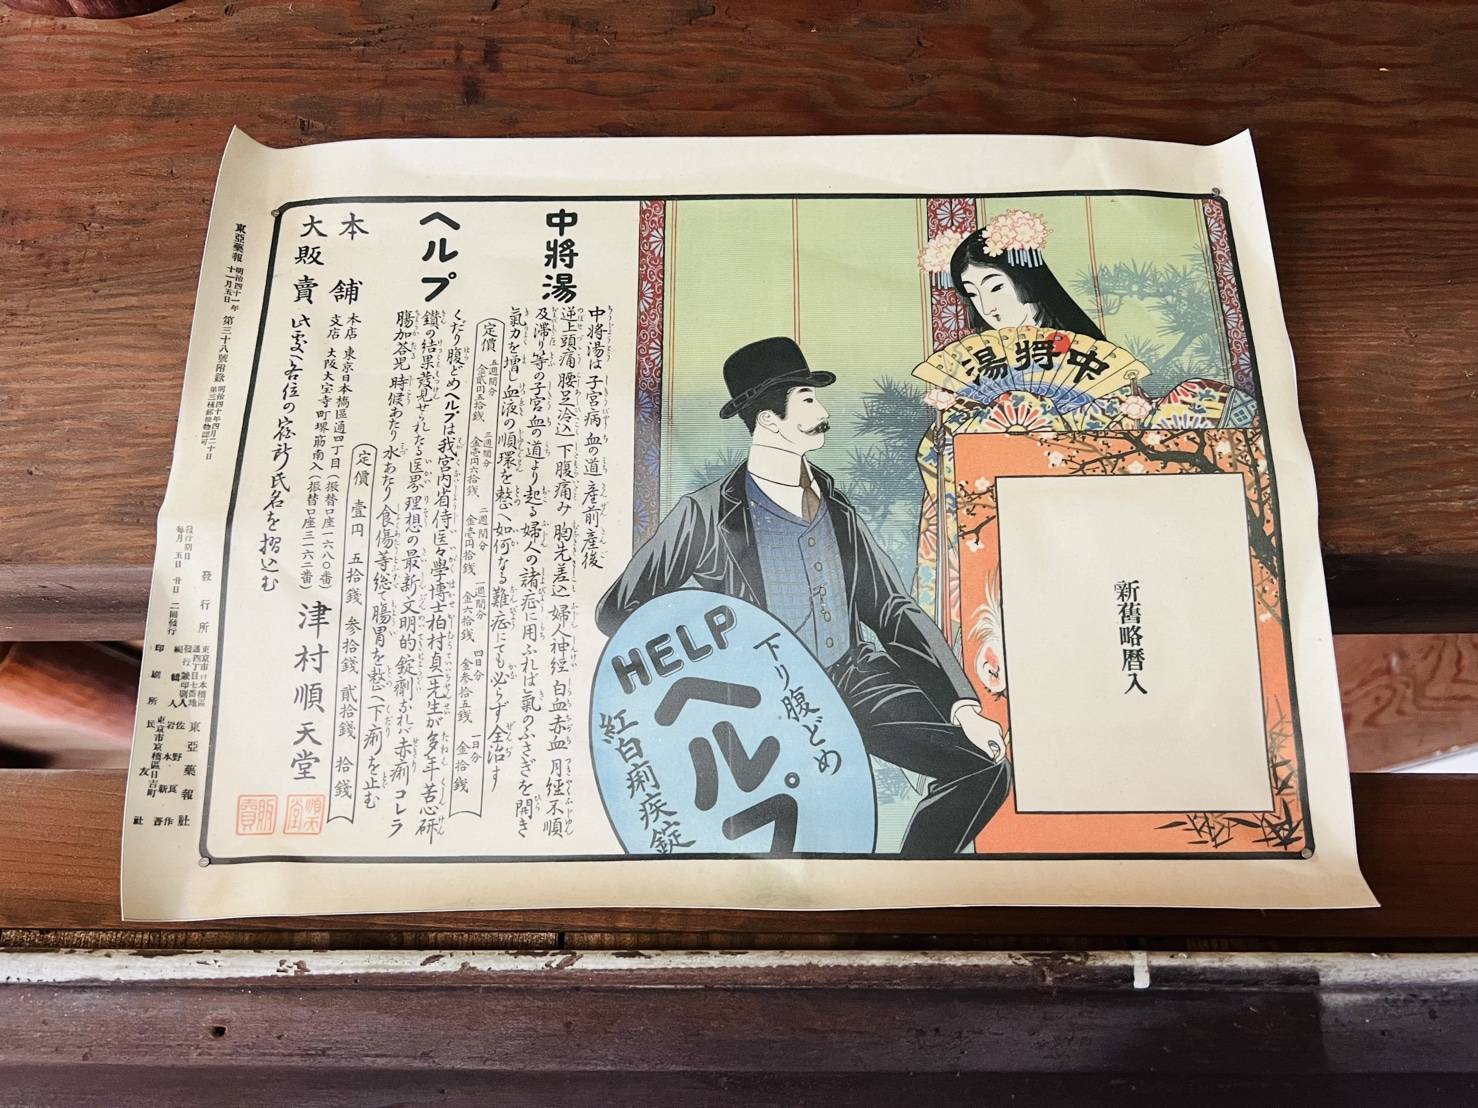 中將湯
新舊略曆入
HELP
ヘルプ
下り腹どめ
紅白痢疾錠
中將湯
中將湯は子宮病血の道産前産後
逆上頭痛腰足冷込下腹痛み胸先差込婦人神經白血赤血月經不順
及滯り等の子宮血の道より起る婦人の諸症に用ふれば氣のふさぎを開き
氣力を增し血液の順環を整へ如何なる難症にても必らず全治す
定價
五週間分 金貳円五拾錢
三週間分 金壱円六拾錢
二週間分 金壱円拾錢
一週間分 金六拾錢
四日分 金参拾五錢
一日分 金拾錢
ヘルプ
くだり腹どめヘルプは我宮内省侍医々學博士柏村貞一先生が多年苦心研
鑽の結果發見せられたる医界理想の最新文明的錠劑なれバ赤痢コレラ
腸加答兒時候あたり水あたり食傷等総て腸胃を整へ下痢を止む
定價 壹円 五拾錢 参拾錢 貳拾錢 拾錢
本舗
本店 東京日本橋區通四丁目(振替口座一六八〇番)
支店 大阪大宝寺町堺筋南入(振替口座三一六二番)
津村順天堂
順天堂
大販賣
此處へ各位の宏告氏名を摺込む
販賣
東亞藥報 明治四十一年十一月五日 第三十八號附錄 明治四十年四月二十日第三種郵便物認可
發行期日
每月 五日 廿日 二回發行
發行所
東京市日本橋區通四丁目七番地
東亞藥報社
發行兼印刷人
編輯人
佐野
岩本
印刷所
東京市京橋區日吉町
民友社